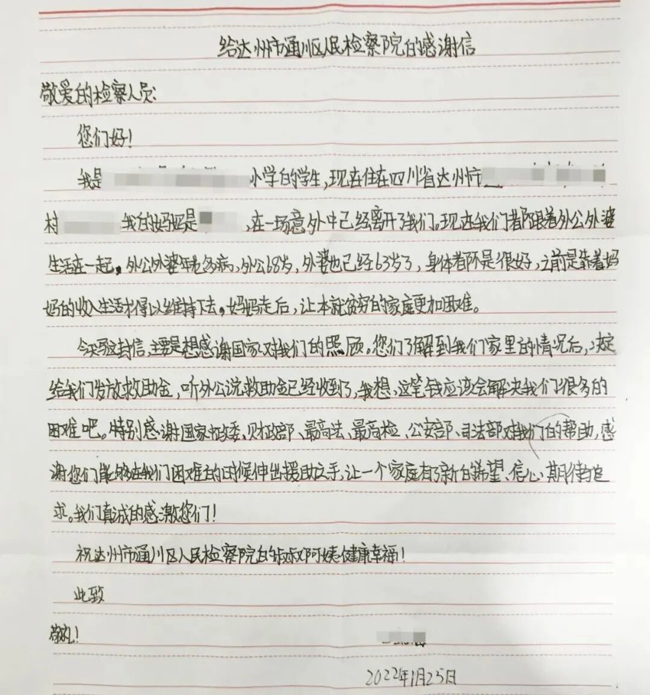 给达州市通川区人民检察院的感谢信
敬爱的检察人员:
您们好!
我是 小学的学生,现在住在四川省达州市
村 我的妈妈是 ,在一场意外中已经离开了我们。现在我们都跟着外公外婆
生活在一起。外公外婆年老多病,外公68岁,外婆也已经63岁了,身体都不是很好,之前是靠着妈
妈的收入生活才得以维持下去。妈妈走后,让本就贫穷的家庭更加困难。
今天写这封信,主要是想感谢国家对我们的照顾。您们了解到我们家里的情况后,决定
给我们发放救助金,听外公说救助金已经收到了,我想,这笔钱应该会解决我们很多的
困难吧。特别感谢国家政委、财政部、最高法、最高检、公安部、司法部对我们的帮助,感
谢您们能够在我们困难的时候伸出援助之手,让一个家庭有了新的希望、信心、期待与追
求。我们真诚的感激您们!
祝达州市通川区人民检察院的叔叔阿姨健康幸福!
此致
敬礼!
2022年1月25日